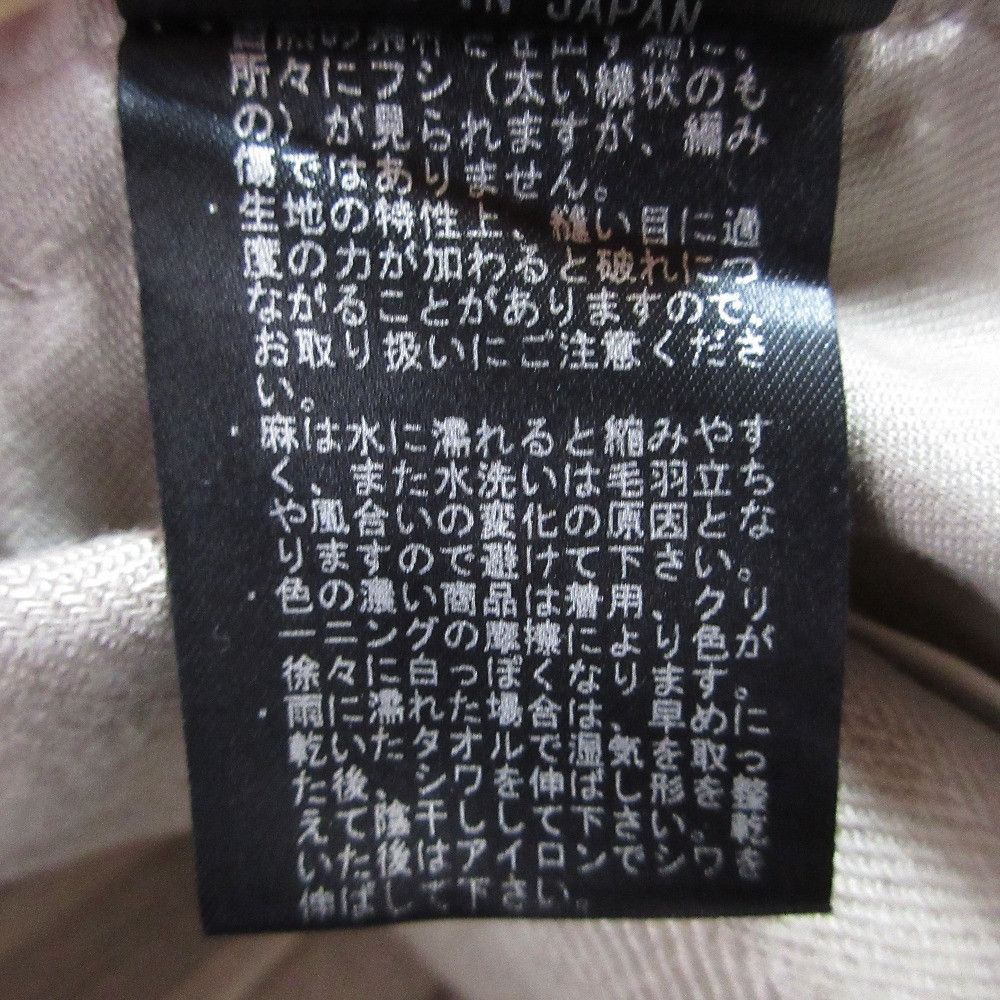 IN JAPAN
所々にフシ(太い繊状のも
の)が見られますが、編み
傷ではありません。
・生地の特性上、縫い目に過
度の力が加わると破れにつ
ながることがありますので、
お取り扱いにご注意くださ
い。
・麻は水に濡れると縮みやす
く、また水洗いは毛羽立ち
や風合いの変化の原因とな
りますので避けて下さい。
・色の濃い商品は着用、クリ
ーニングの摩擦により色が
徐々に白っぽくなります。
・雨に濡れた場合は、早めに
乾いたタオルで湿気を取っ
た後、シワを伸ばし形を整
えて陰干しして下さい。乾
いた後はアイロンでシワを
伸ばして下さい。